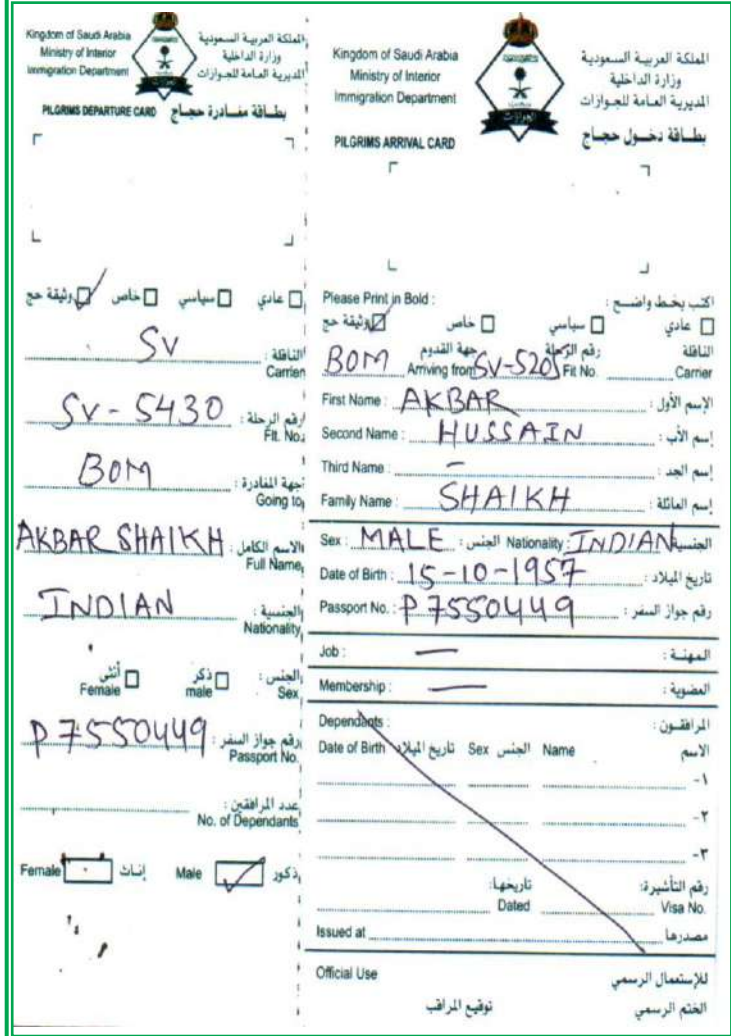 Kingdom of Saudi Arabia المملكة العربية السعودية
Ministry of Interior وزارة الداخلية
Immigration Department المديرية العامة للجوازات
PILGRIMS DEPARTURE CARD بطاقة مغادرة حجاج
عادي سياسي خاص وثيقة حج
SV الناقلة :
Carrier
SV - 5430 رقم الرحلة :
Flt. No.
BOM جهة المغادرة :
Going to
AKBAR SHAIKH الاسم الكامل :
Full Name
INDIAN الجنسية :
Nationality
الجنس : ذكر أنثى
Sex male Female
P7550449 رقم جواز السفر :
Passport No.
عدد المرافقين :
No. of Dependants
ذكور Male إناث Female
Kingdom of Saudi Arabia المملكة العربية السعودية
Ministry of Interior وزارة الداخلية
Immigration Department المديرية العامة للجوازات
الجوازات
PILGRIMS ARRIVAL CARD بطاقة دخول حجاج
Please Print in Bold : اكتب بخط واضح :
عادي سياسي خاص وثيقة حج
الناقلة رقم الرحلة جهة القدوم
BOM Arriving from SV-5205 Flt No. Carrier
First Name : AKBAR الإسم الأول :
Second Name : HUSSAIN إسم الأب :
Third Name : – إسم الجد :
Family Name : SHAIKH إسم العائلة :
Sex : MALE الجنس : Nationality : INDIAN الجنسية
Date of Birth : 15-10-1957 تاريخ الميلاد :
Passport No. : P7550449 رقم جواز السفر :
Job : — المهنة :
Membership : — العضوية :
Dependants : المرافقون :
Date of Birth تاريخ الميلاد Sex الجنس Name الاسم
-١
-٢
-٣
تاريخها: رقم التأشيرة:
Dated Visa No.
Issued at مصدرها
Official Use للإستعمال الرسمي
توقيع المراقب الختم الرسمي